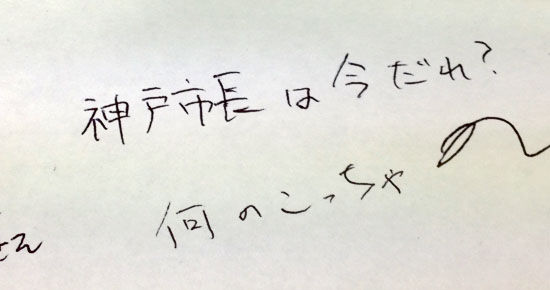 神戸市長は今だれ?
何のこっちゃ
さん